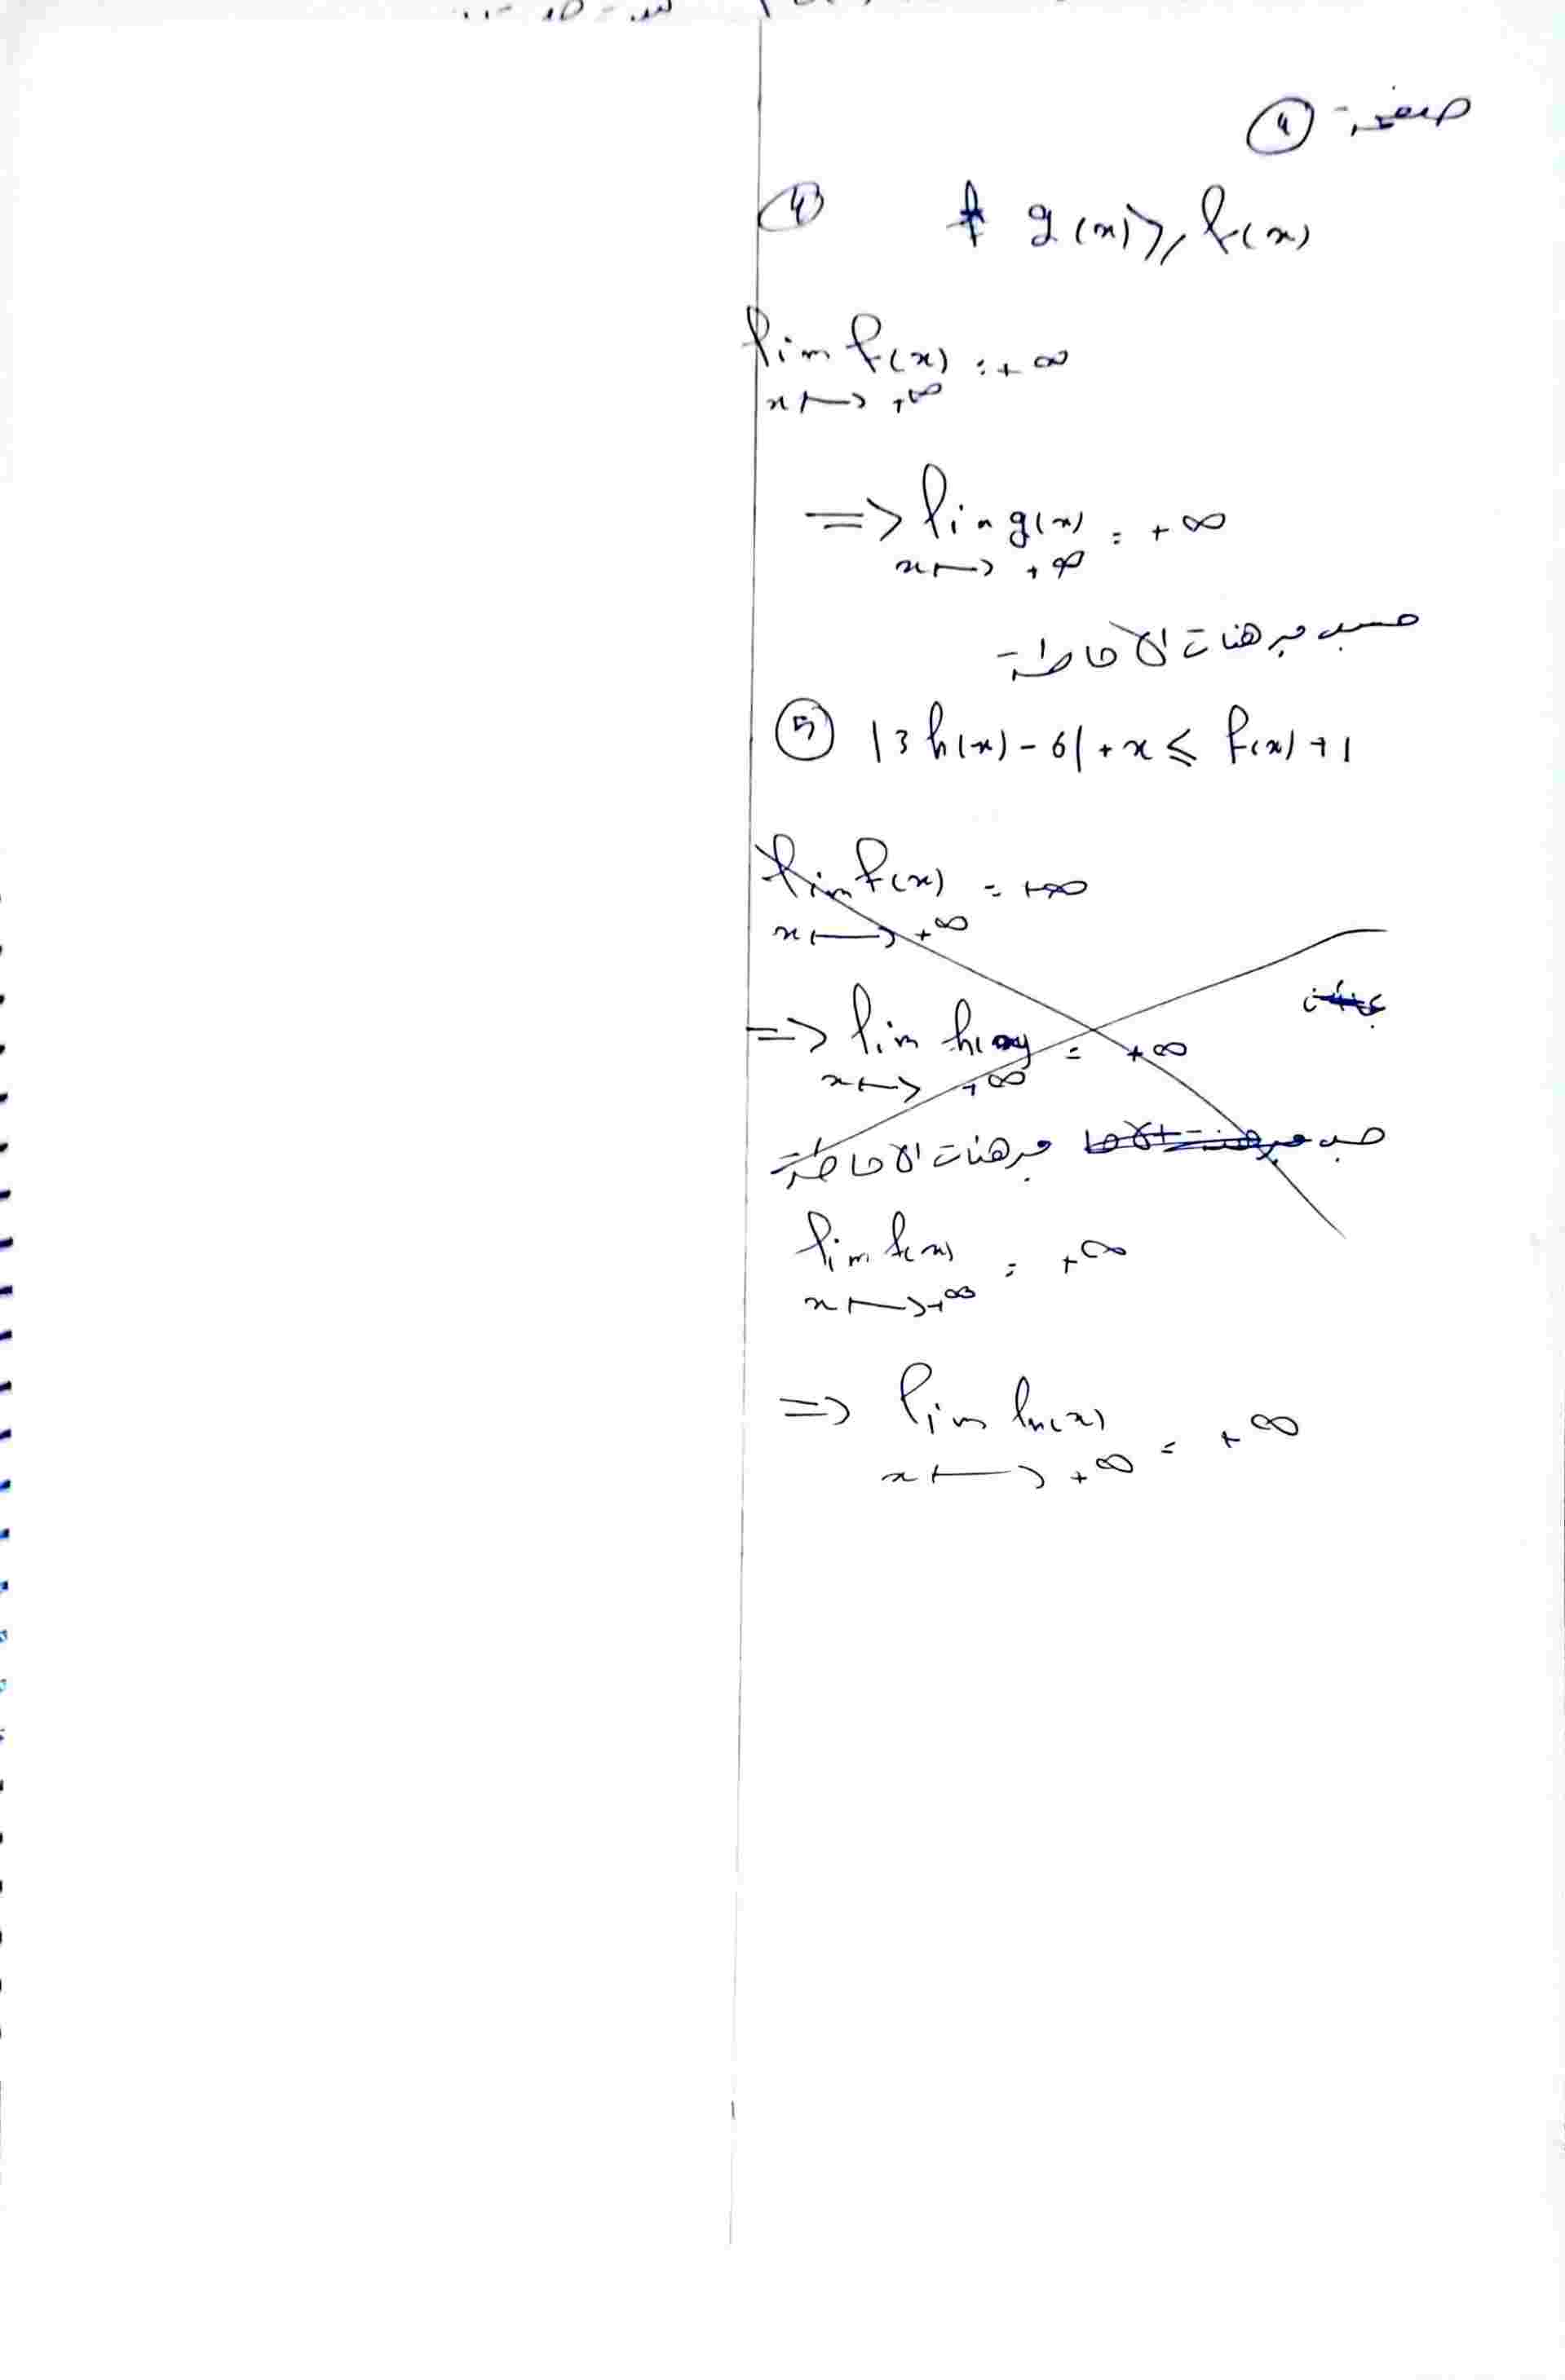 صفحة ④
④ g(x) ⩾ f(x)
lim f(x) = +∞
x ⟼ +∞
=> lim g(x) = +∞
x ⟼ +∞
حسب مبرهنات الاحاطة
⑤ |3h(x) - 6| + x ⩽ f(x) + 1
lim f(x) = +∞
x ⟼ +∞
=> lim h(x) = +∞
x ⟼ +∞
حسب مبرهنات الاحاطة
lim f(x) = +∞
x ⟼ +∞
=> lim h(x) = +∞
x ⟼ +∞